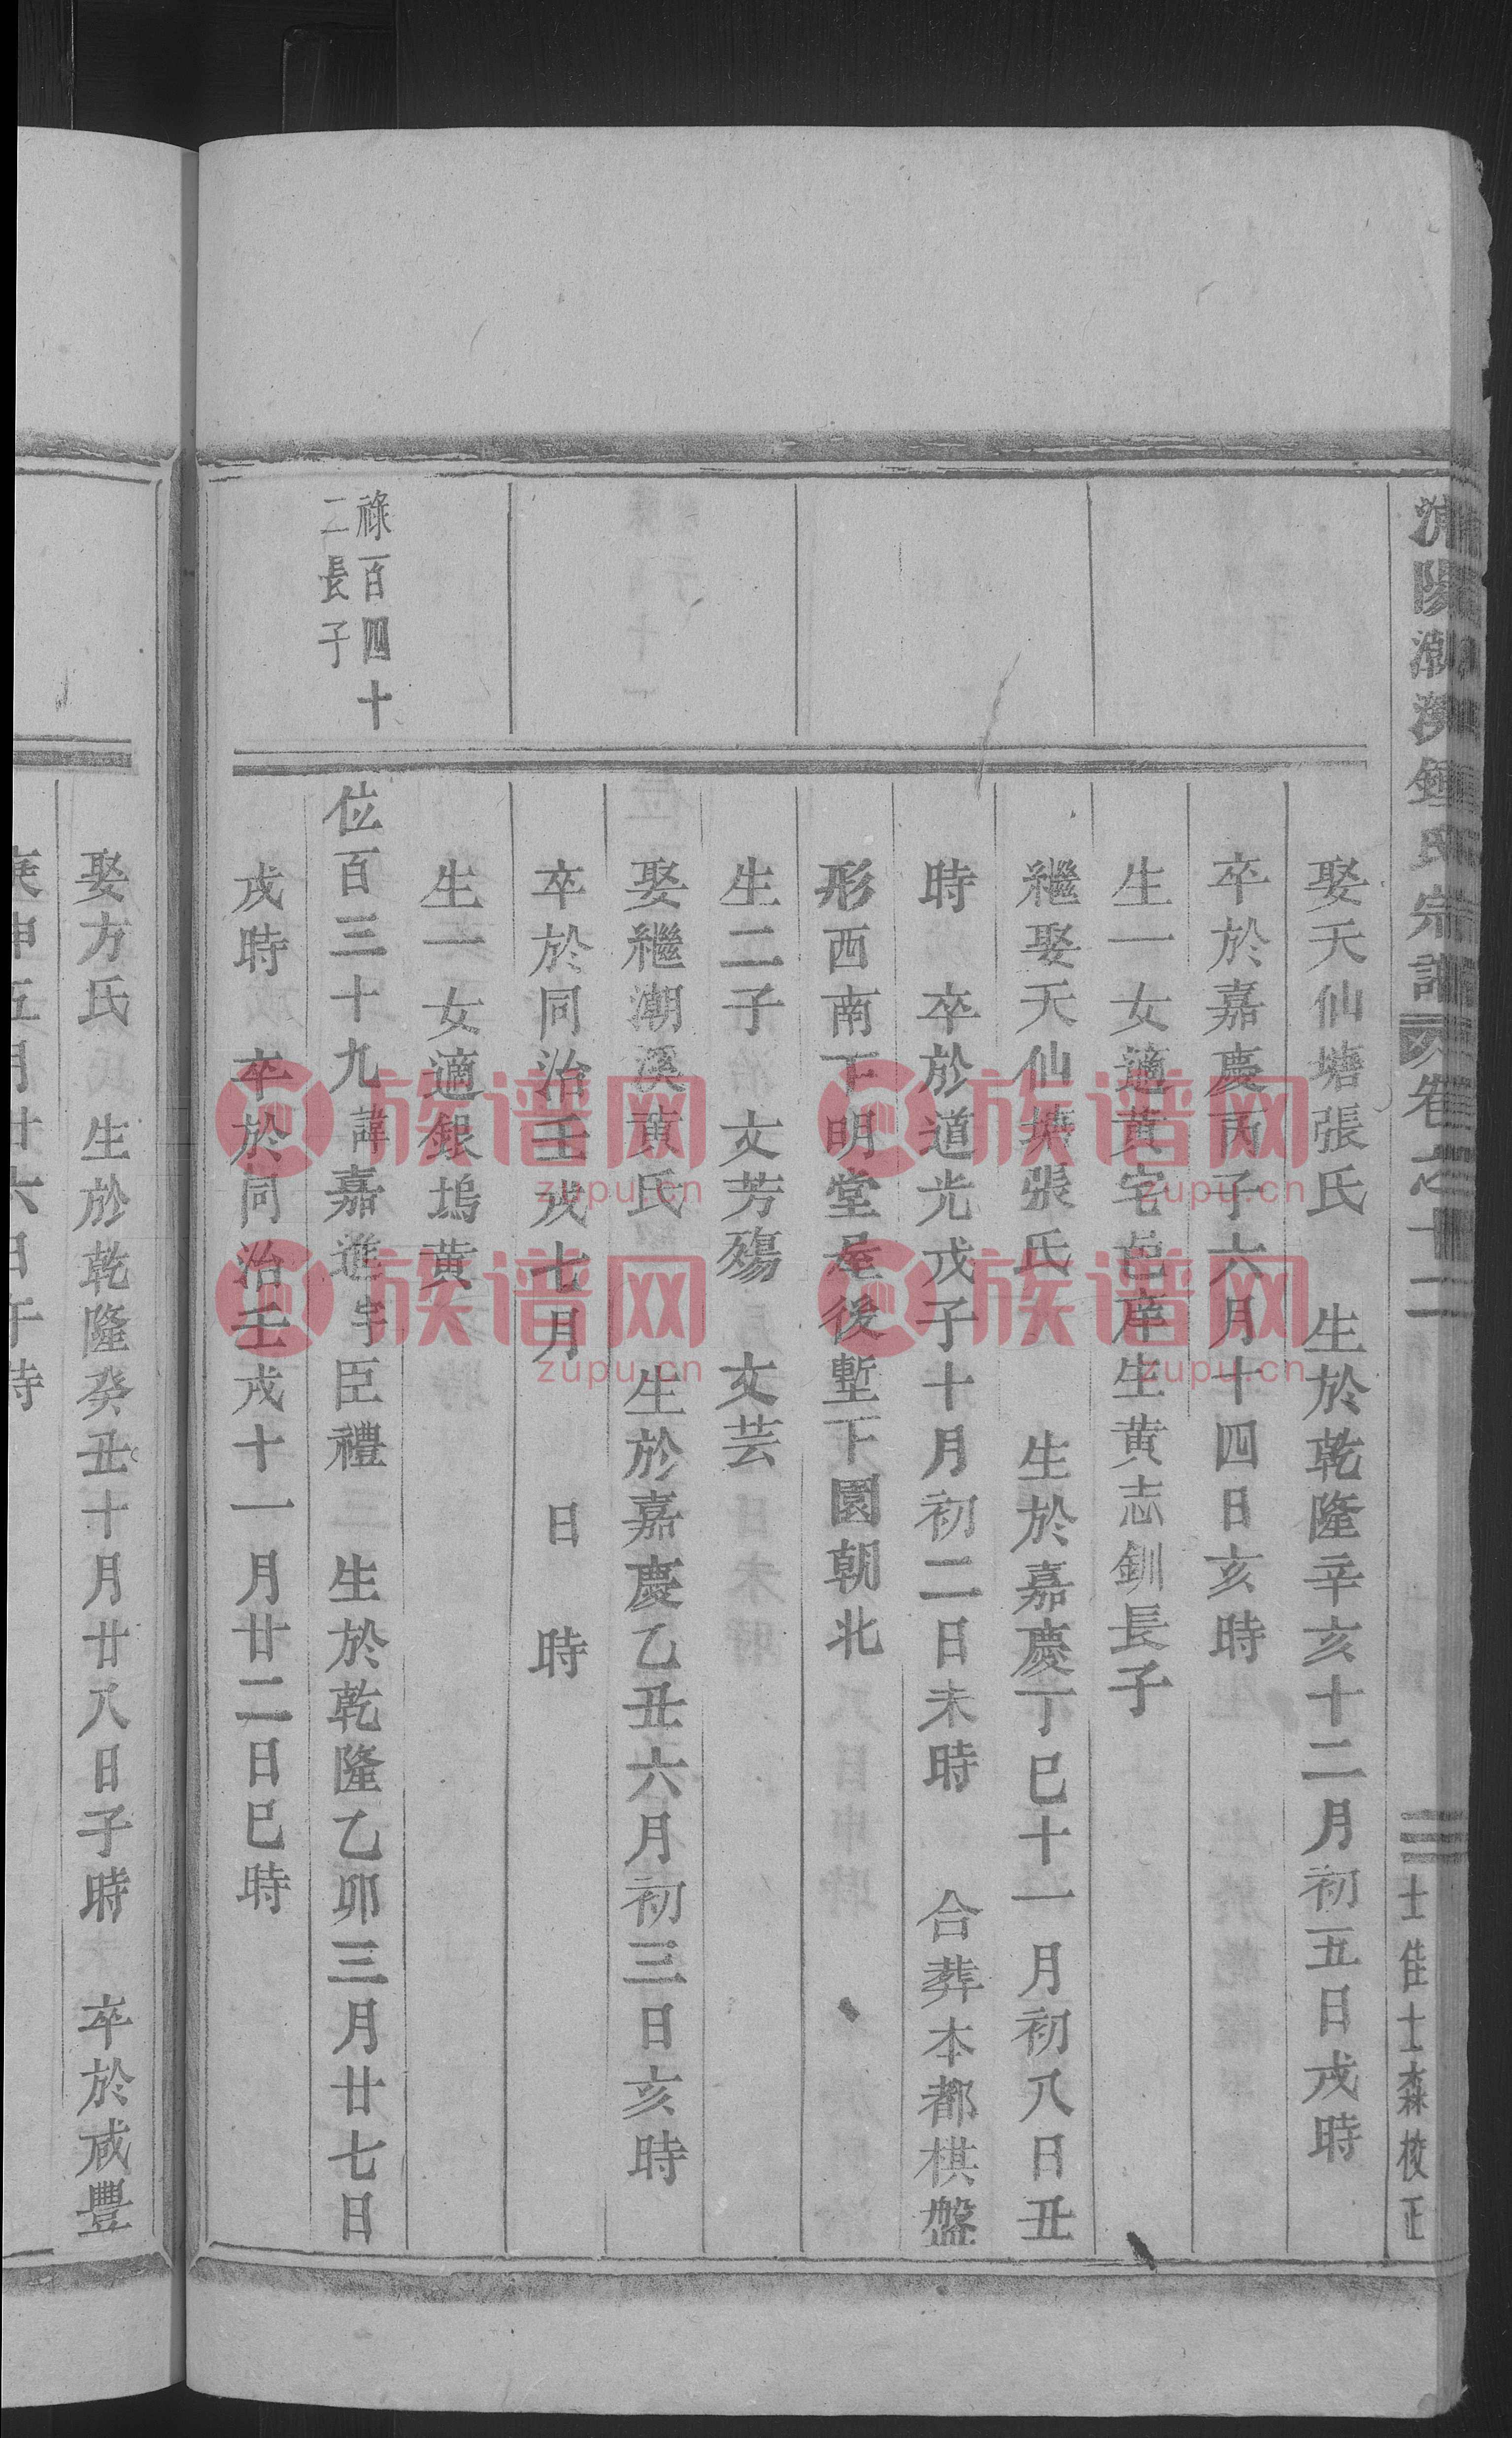 陽潮溪鍾氏宗譜 卷之十二
士佳士森校正
娶天仙塘張氏 生於乾隆辛亥十二月初五日戌時
卒於嘉慶丙子六月十四日亥時
生一女適黃宅邑庠生黄志釧長子
繼娶天仙塘張氏 生於嘉慶丁巳十一月初八日丑
時 卒於道光戊子十月初二日未時 合葬本都棋盤
形西南下明堂屋後塹下園朝北
生二子 文芳殤 文芸
娶繼潮溪黃氏 生於嘉慶乙丑六月初三日亥時
卒於同治壬戌七月 日 時
生一女適銀塢黄
祿百四十
二長子
位百三十九諱嘉進字臣禮 生於乾隆乙卯三月廿七日
戌時 卒於同治壬戌十一月廿二日巳時
娶方氏 生於乾隆癸丑十月廿八日子時 卒於咸豐
庚申五月廿六日午時
族谱网
zupu.cn
族谱网
zupu.cn
族谱网
zupu.cn
族谱网
zupu.cn